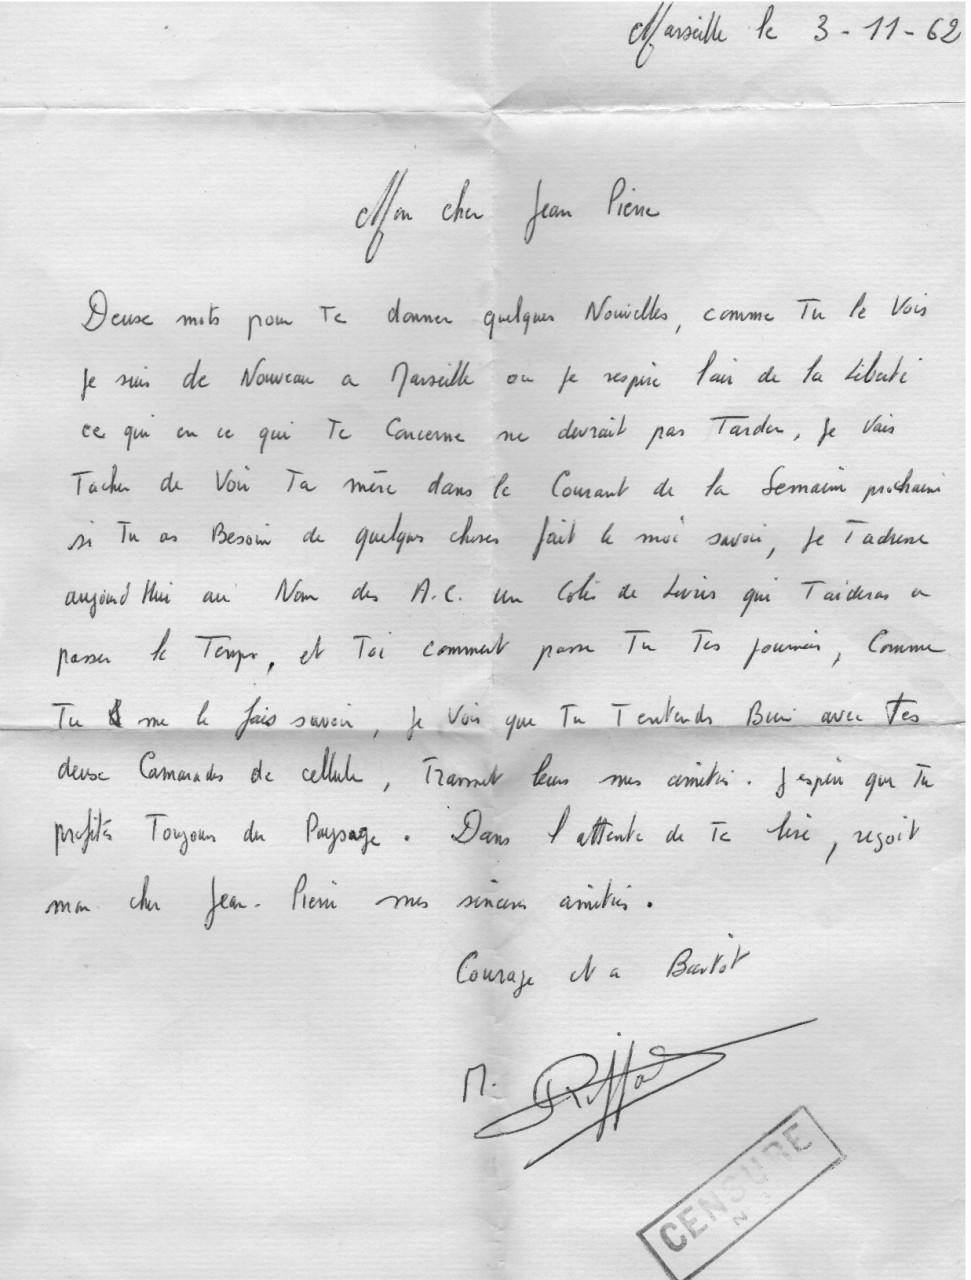 Marseille le 3-11-62
Mon cher Jean Pierre
Deuxe mots pour Te donner quelques Nouvelles, comme Tu le Vois
Je suis de Nouveau a Marseille ou Je respire l'air de la Liberté
ce qui en ce qui Te Concerne ne devrait pas Tarder, Je Vais
Tacher de Voir Ta mère dans le Courant de la Semaine prochaine
si Tu as Besoin de quelques choses fait le moi savoir, Je T'adresse
aujourd'Hui au Nom des A.C. un Colis de Livres qui T'aideras a
passer le Temps, et Toi comment passe Tu Tes journées, Comme
Tu me le fais savoir, Je Vois que Tu T'entends Bien avec Tes
deuxe Camarades de cellule, Transmet leurs mes amitiés. J'espère que Tu
profités Toujours du Paysage. Dans l'attente de Te lire, reçoit
mon cher Jean-Pierre mes sincères amitiés.
Courage et a Bientôt
M.
CENSURE
N